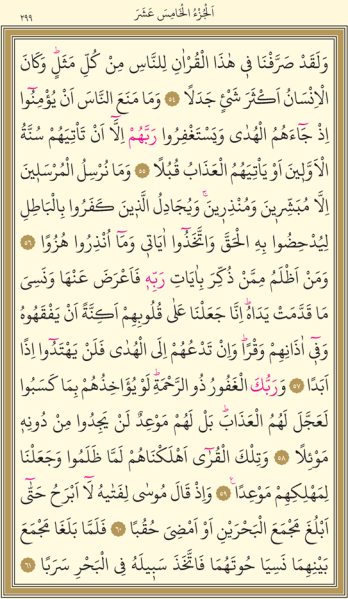 اَلْجُزْءُ الْخَامِسَ عَشَرَ
٢٩٩
وَلَقَدْ صَرَّفْنَا ف۪ي هٰذَا الْقُرْاٰنِ لِلنَّاسِ مِنْ كُلِّ مَثَلٍۜ وَكَانَ
الْاِنْسَانُ اَكْثَرَ شَيْءٍ جَدَلًا ﴿٥٤﴾ وَمَا مَنَعَ النَّاسَ اَنْ يُؤْمِنُٓوا
اِذْ جَٓاءَهُمُ الْهُدٰى وَيَسْتَغْفِرُوا رَبَّهُمْ اِلَّٓا اَنْ تَأْتِيَهُمْ سُنَّةُ
الْاَوَّل۪ينَ اَوْ يَأْتِيَهُمُ الْعَذَابُ قُبُلًا ﴿٥٥﴾ وَمَا نُرْسِلُ الْمُرْسَل۪ينَ
اِلَّا مُبَشِّر۪ينَ وَمُنْذِر۪ينَۚ وَيُجَادِلُ الَّذ۪ينَ كَفَرُوا بِالْبَاطِلِ
لِيُدْحِضُوا بِهِ الْحَقَّ وَاتَّخَذُٓوا اٰيَات۪ي وَمَٓا اُنْذِرُوا هُزُوًا ﴿٥٦﴾
وَمَنْ اَظْلَمُ مِمَّنْ ذُكِّرَ بِاٰيَاتِ رَبِّه۪ فَاَعْرَضَ عَنْهَا وَنَسِيَ
مَا قَدَّمَتْ يَدَاهُۜ اِنَّا جَعَلْنَا عَلٰى قُلُوبِهِمْ اَكِنَّةً اَنْ يَفْقَهُوهُ
وَف۪ٓي اٰذَانِهِمْ وَقْرًاۜ وَاِنْ تَدْعُهُمْ اِلَى الْهُدٰى فَلَنْ يَهْتَدُٓوا اِذًا
اَبَدًا ﴿٥٧﴾ وَرَبُّكَ الْغَفُورُ ذُو الرَّحْمَةِۜ لَوْ يُؤَاخِذُهُمْ بِمَا كَسَبُوا
لَعَجَّلَ لَهُمُ الْعَذَابَۜ بَلْ لَهُمْ مَوْعِدٌ لَنْ يَجِدُوا مِنْ دُونِه۪
مَوْئِلًا ﴿٥٨﴾ وَتِلْكَ الْقُرٰٓى اَهْلَكْنَاهُمْ لَمَّا ظَلَمُوا وَجَعَلْنَا
لِمَهْلِكِهِمْ مَوْعِدًا۟ ﴿٥٩﴾ وَاِذْ قَالَ مُوسٰى لِفَتٰيهُ لَٓا اَبْرَحُ حَتّٰٓى
اَبْلُغَ مَجْمَعَ الْبَحْرَيْنِ اَوْ اَمْضِيَ حُقُبًا ﴿٦٠﴾ فَلَمَّا بَلَغَا مَجْمَعَ
بَيْنِهِمَا نَسِيَا حُوتَهُمَا فَاتَّخَذَ سَب۪يلَهُ فِي الْبَحْرِ سَرَبًا ﴿٦١﴾